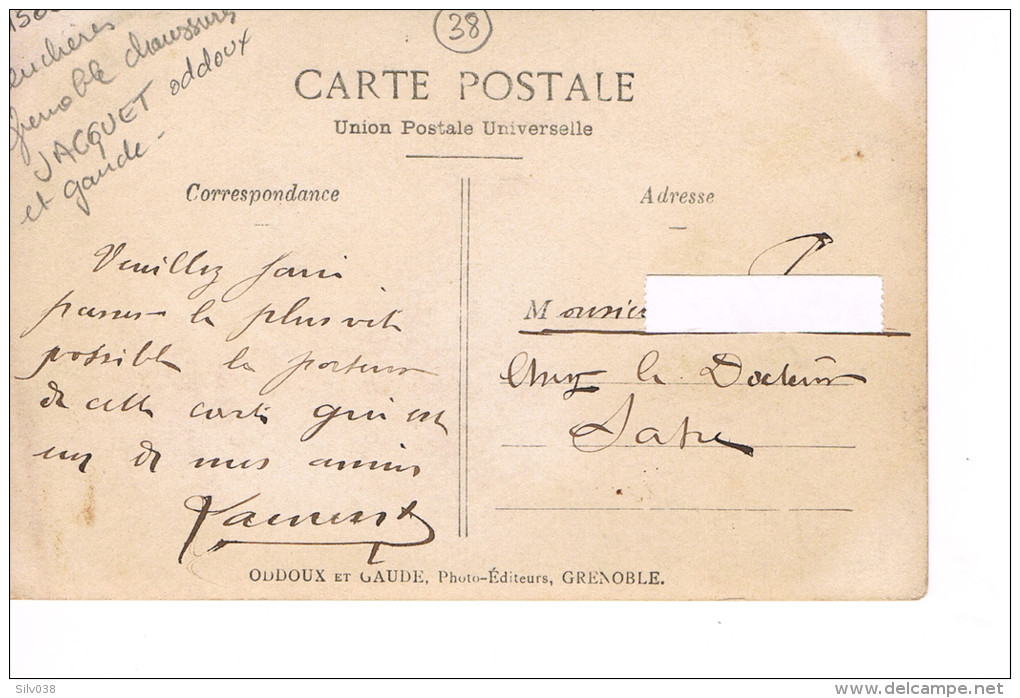 38
enchères
Grenoble chaussures
JACQUET oddoux
et gaude
CARTE POSTALE
Union Postale Universelle
Correspondance
Adresse
Veuillez faire
passer le plus vite
possible le porteur
de cette carte qui est
un de mes amis
Monsieur
Chez le Docteur
ODDOUX ET GAUDE, Photo-Éditeurs, GRENOBLE.
Silv038
www.delcampe.net